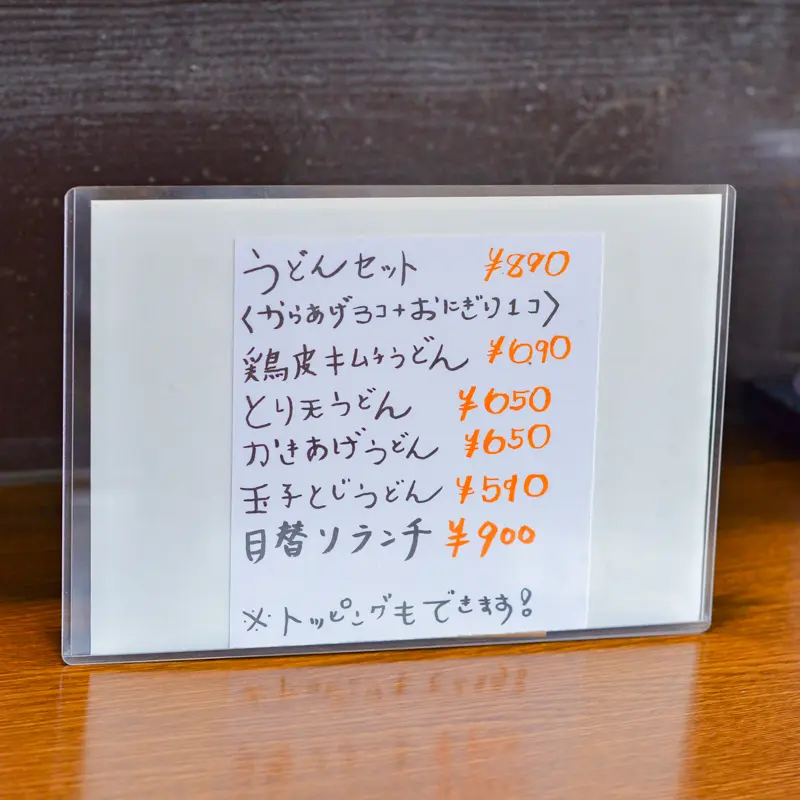 うどんセット ¥890
〈からあげ3コ+おにぎり1コ〉
鶏皮キムチうどん ¥690
とり天うどん ¥650
かきあげうどん ¥650
玉子とじうどん ¥590
日替りランチ ¥900
※トッピングもできます!